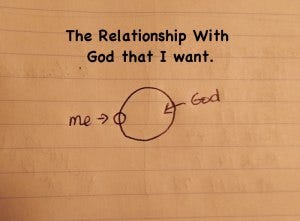 The Relationship With
God that I want.
God
me